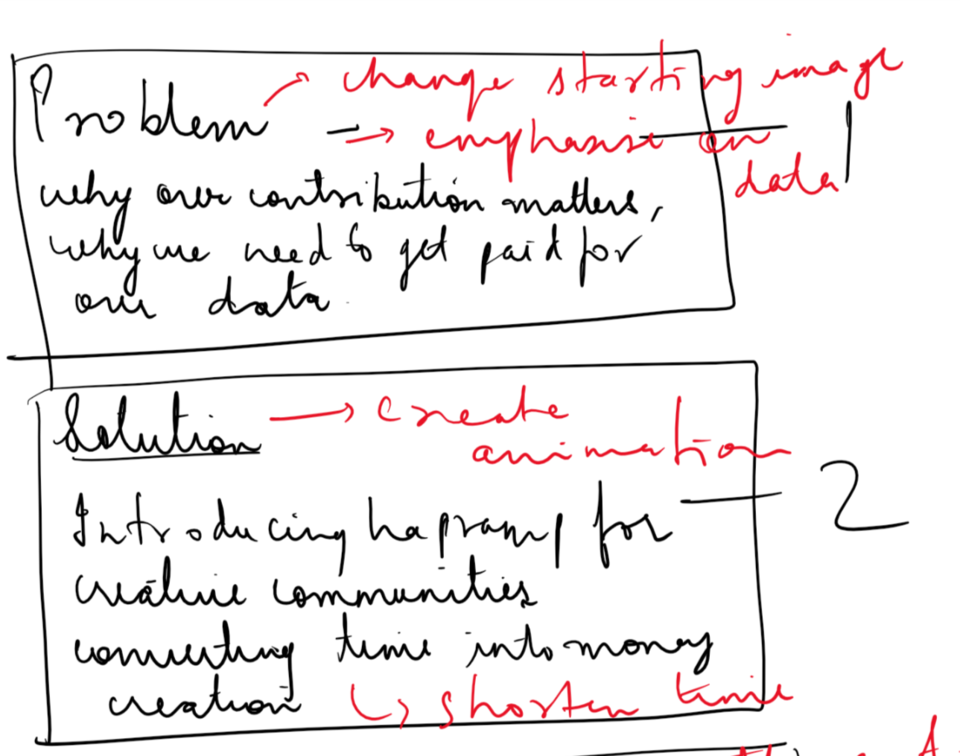 Problem → change starting image
→ emphasise on
data
1
why our contribution matters,
why we need to get paid for
our data.
Solution → create
animation
2
Introducing hapramp for
creative communities
converting time into money
creation ↳ shorten time